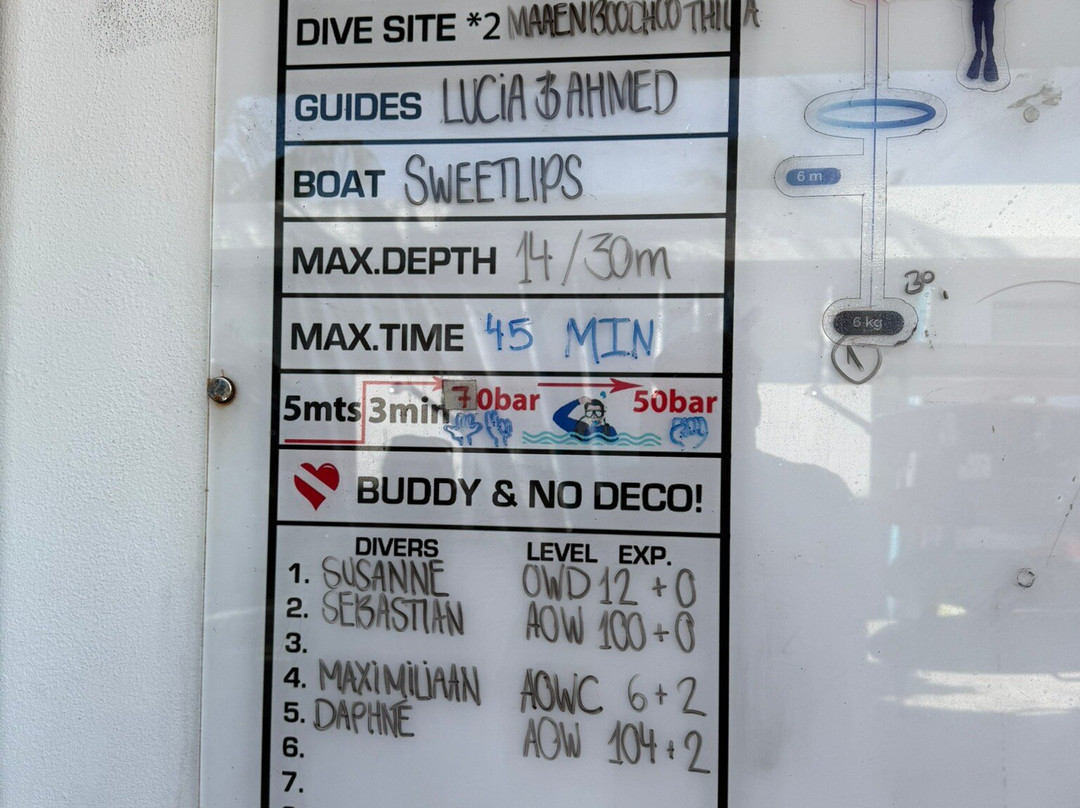 DIVE SITE *2 MAAENBOODHOO THILA
GUIDES LUCiA & AHMED
BOAT SWEETLIPS
MAX.DEPTH 14/30m
MAX.TIME 45 MIN
5mts 3min 70bar 50bar
BUDDY & NO DECO!
DIVERS LEVEL EXP.
1. SUSANNE OWD 12 + 0
2. SEBASTIAN AOW 100 + 0
3.
4. MAXiMiLiAAN AOWC 6 + 2
5. DAPHNE AOW 104 + 2
6.
7.
6 m
30
6 kg
1